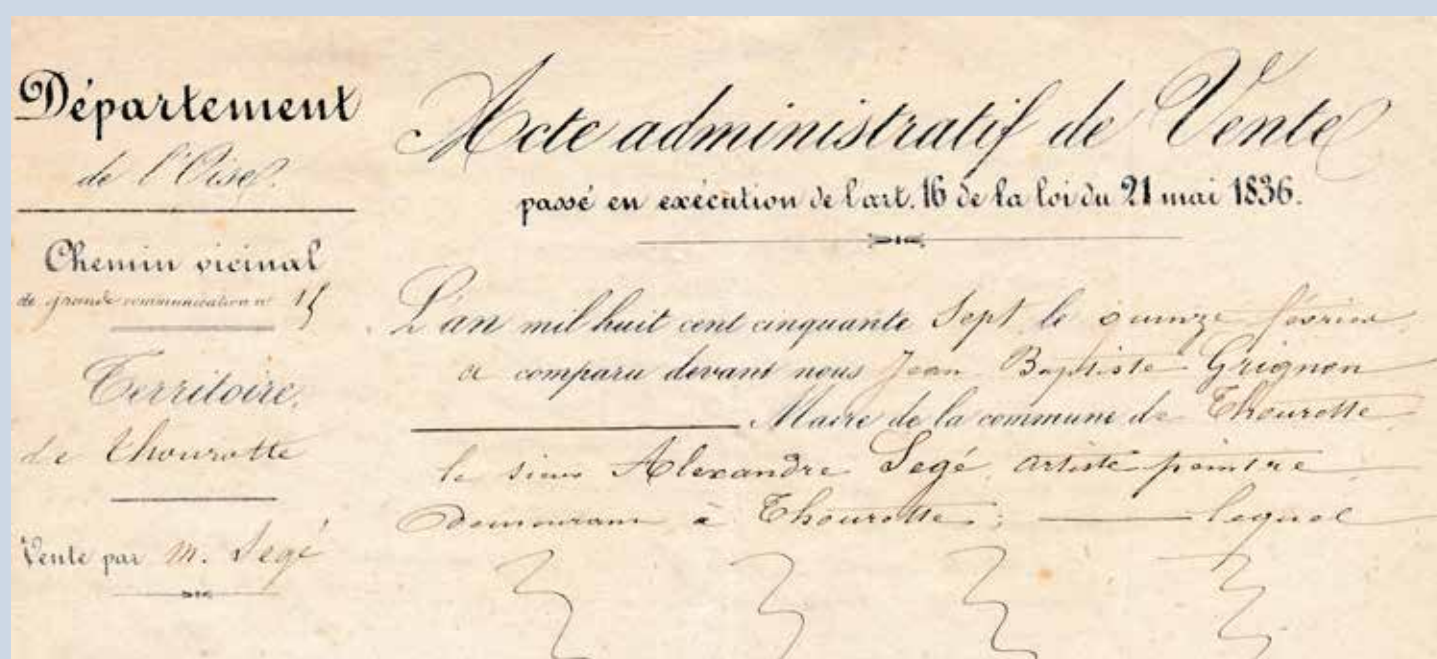 Département
de l'Oise.
Chemin vicinal
de grande communication nº 15
Territoire
de Thourotte
Vente par M. Segé
Acte administratif de Vente
passé en exécution de l'art. 16 de la loi du 21 mai 1836.
L'an mil huit cent cinquante Sept le quinze février
a comparu devant nous Jean Baptiste Grignon
Maire de la commune de Thourotte
le sieur Alexandre Segé, artiste peintre
demeurant à Thourotte; lequel